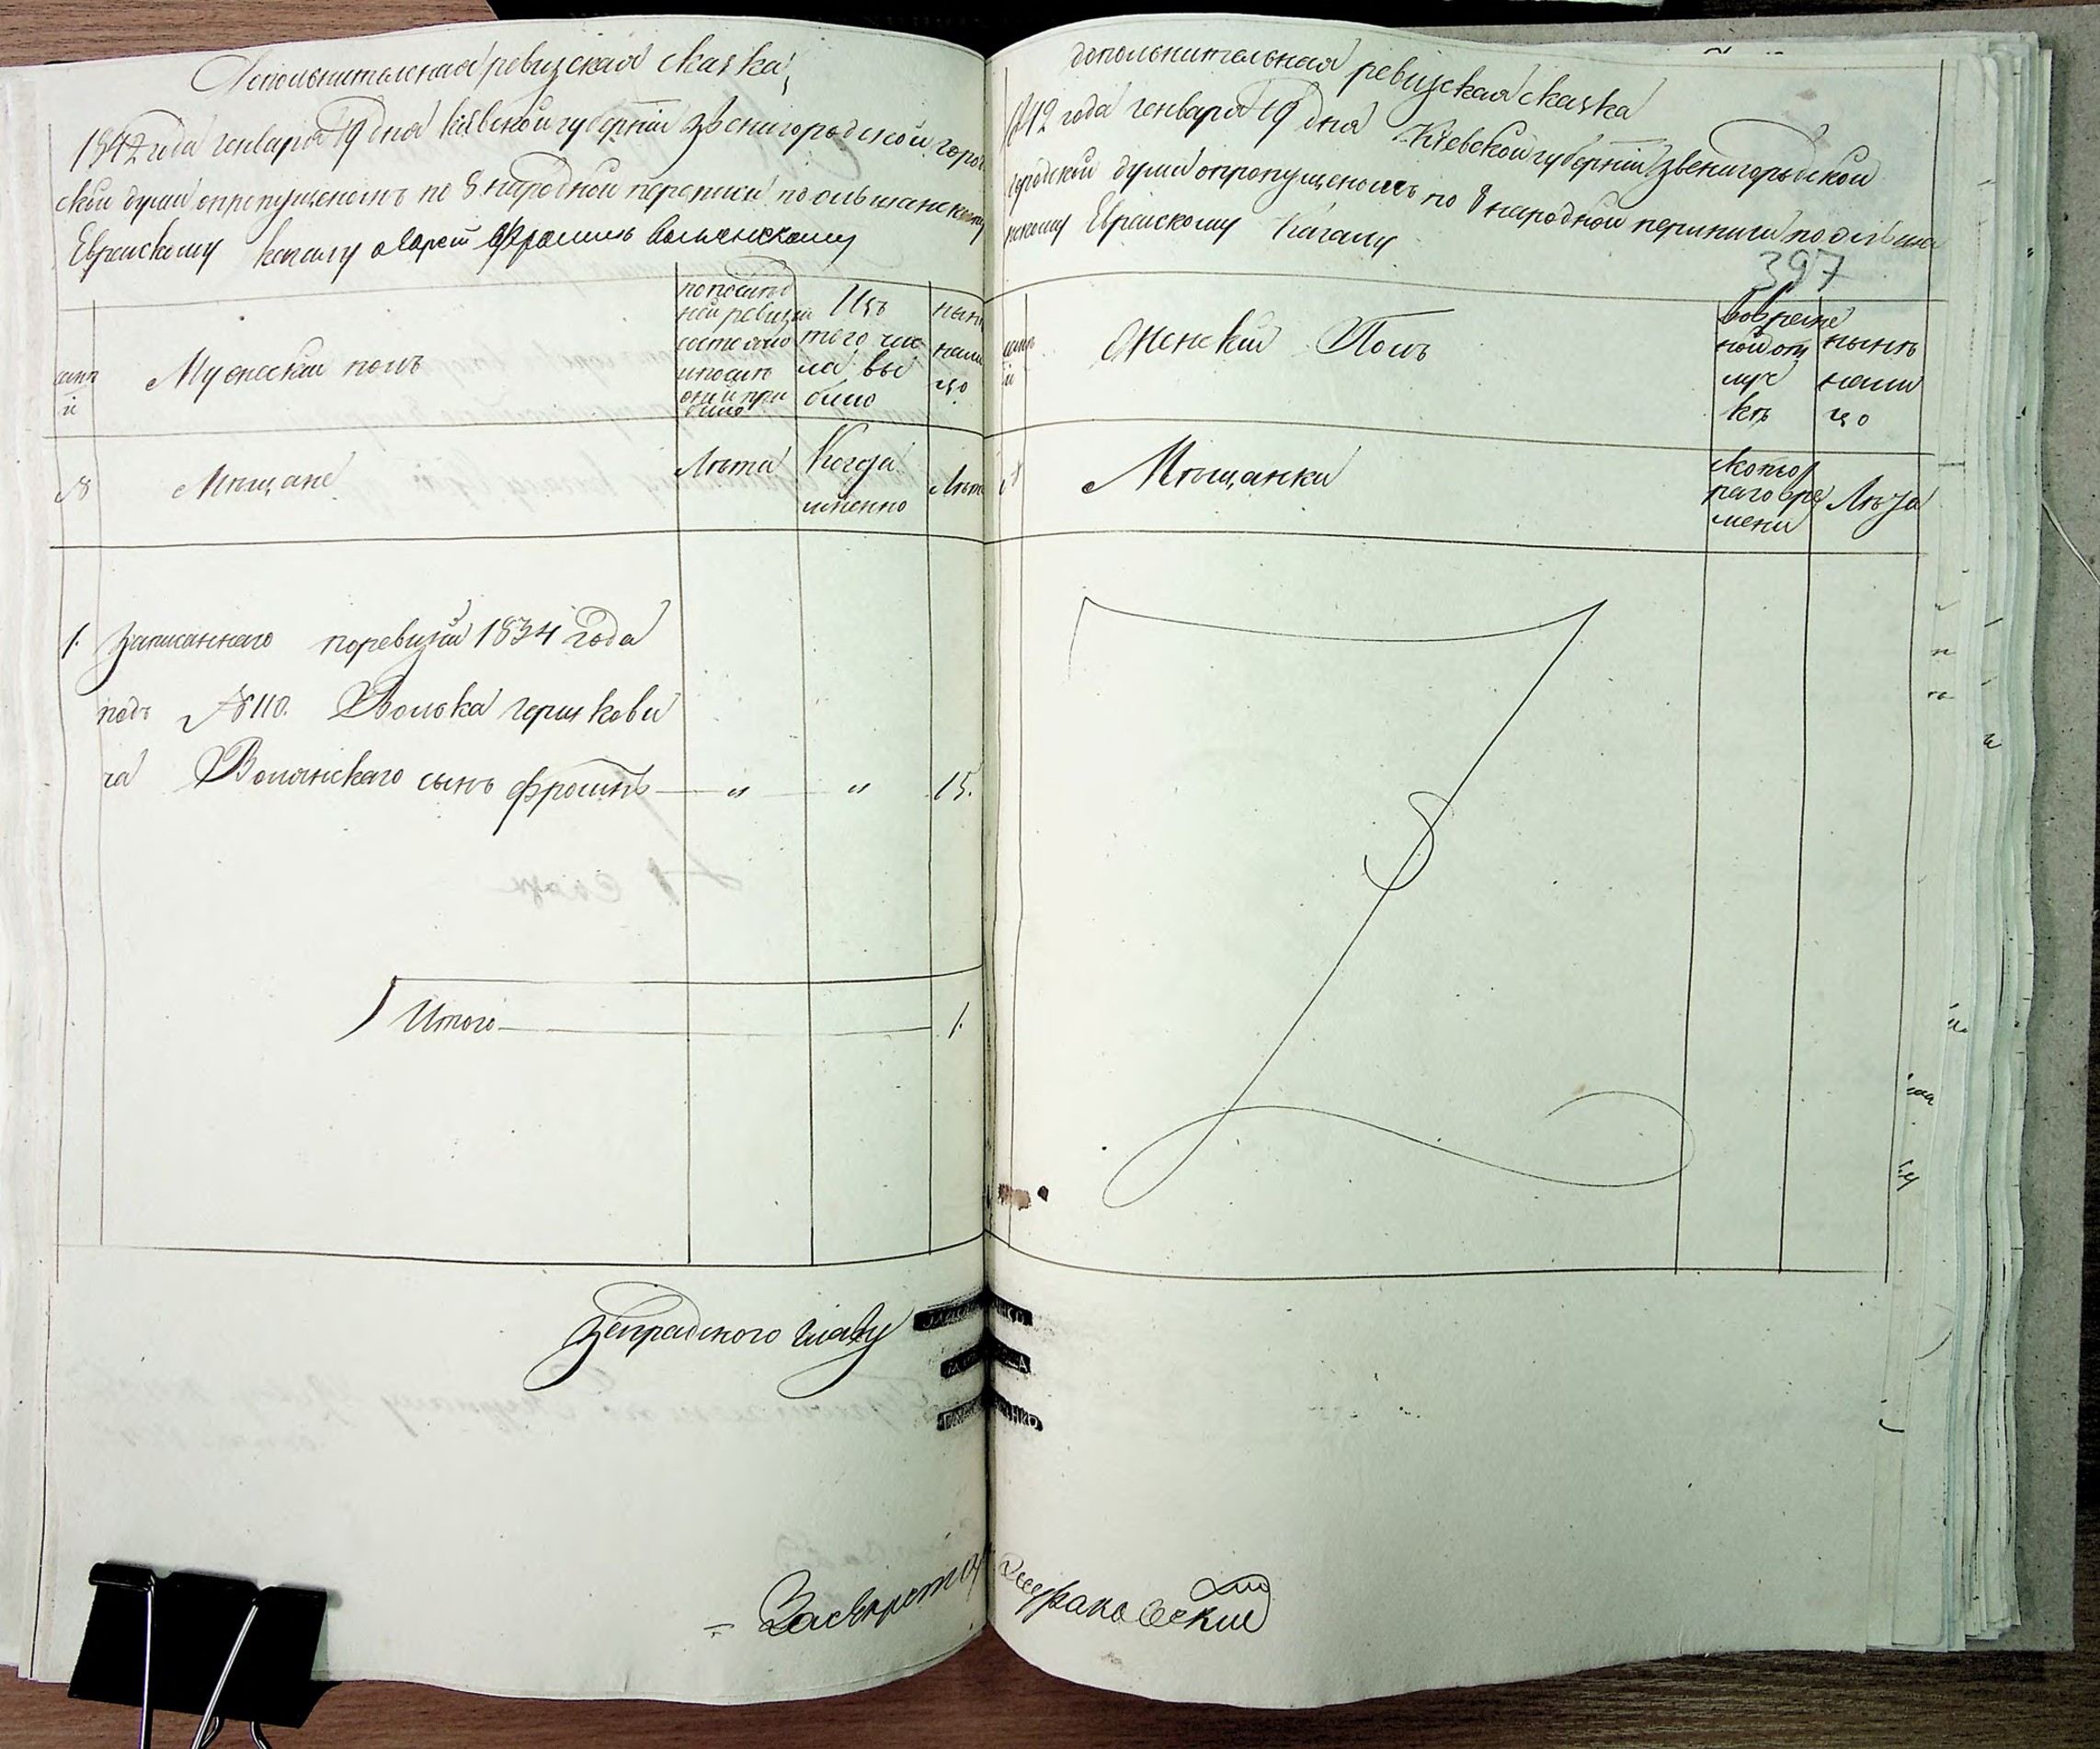 Дополнительная ревизская сказка
1842 года генваря 19 дня Киевской губернии Звенигородской город
ской думы о пропущеномъ по 8 народной переписи по ольшанскому
Еврейскому кагалу Фроимъ Волянскому
Мужеский полъ
по послѣд
ней ревизии
состояло
и после
оний при
было
Изъ
того чис
ла вы
было
нын
нали
цо
№
Мѣщане
Лѣта
Когда
именно
Лѣта
1. Записаннаго по ревизии 1834 года
подъ №110. Волька гершкови
ча Волянскаго сынъ Фроимъ — „ — „ 15.
Итого — 1.
градского главу
За секретаря
дополнительная ревизская сказка
1842 года генваря 19 дня Киевской губернии Звенигородской
городской думы о пропущеномъ по 8 народной переписи по ольша
нскому Еврейскому Кагалу
397
Женский Полъ
во време
ной от
луч
кѣ
нынѣ
нали
цо
№
Мѣщанки
с котор
раго вре
мени
Лѣта